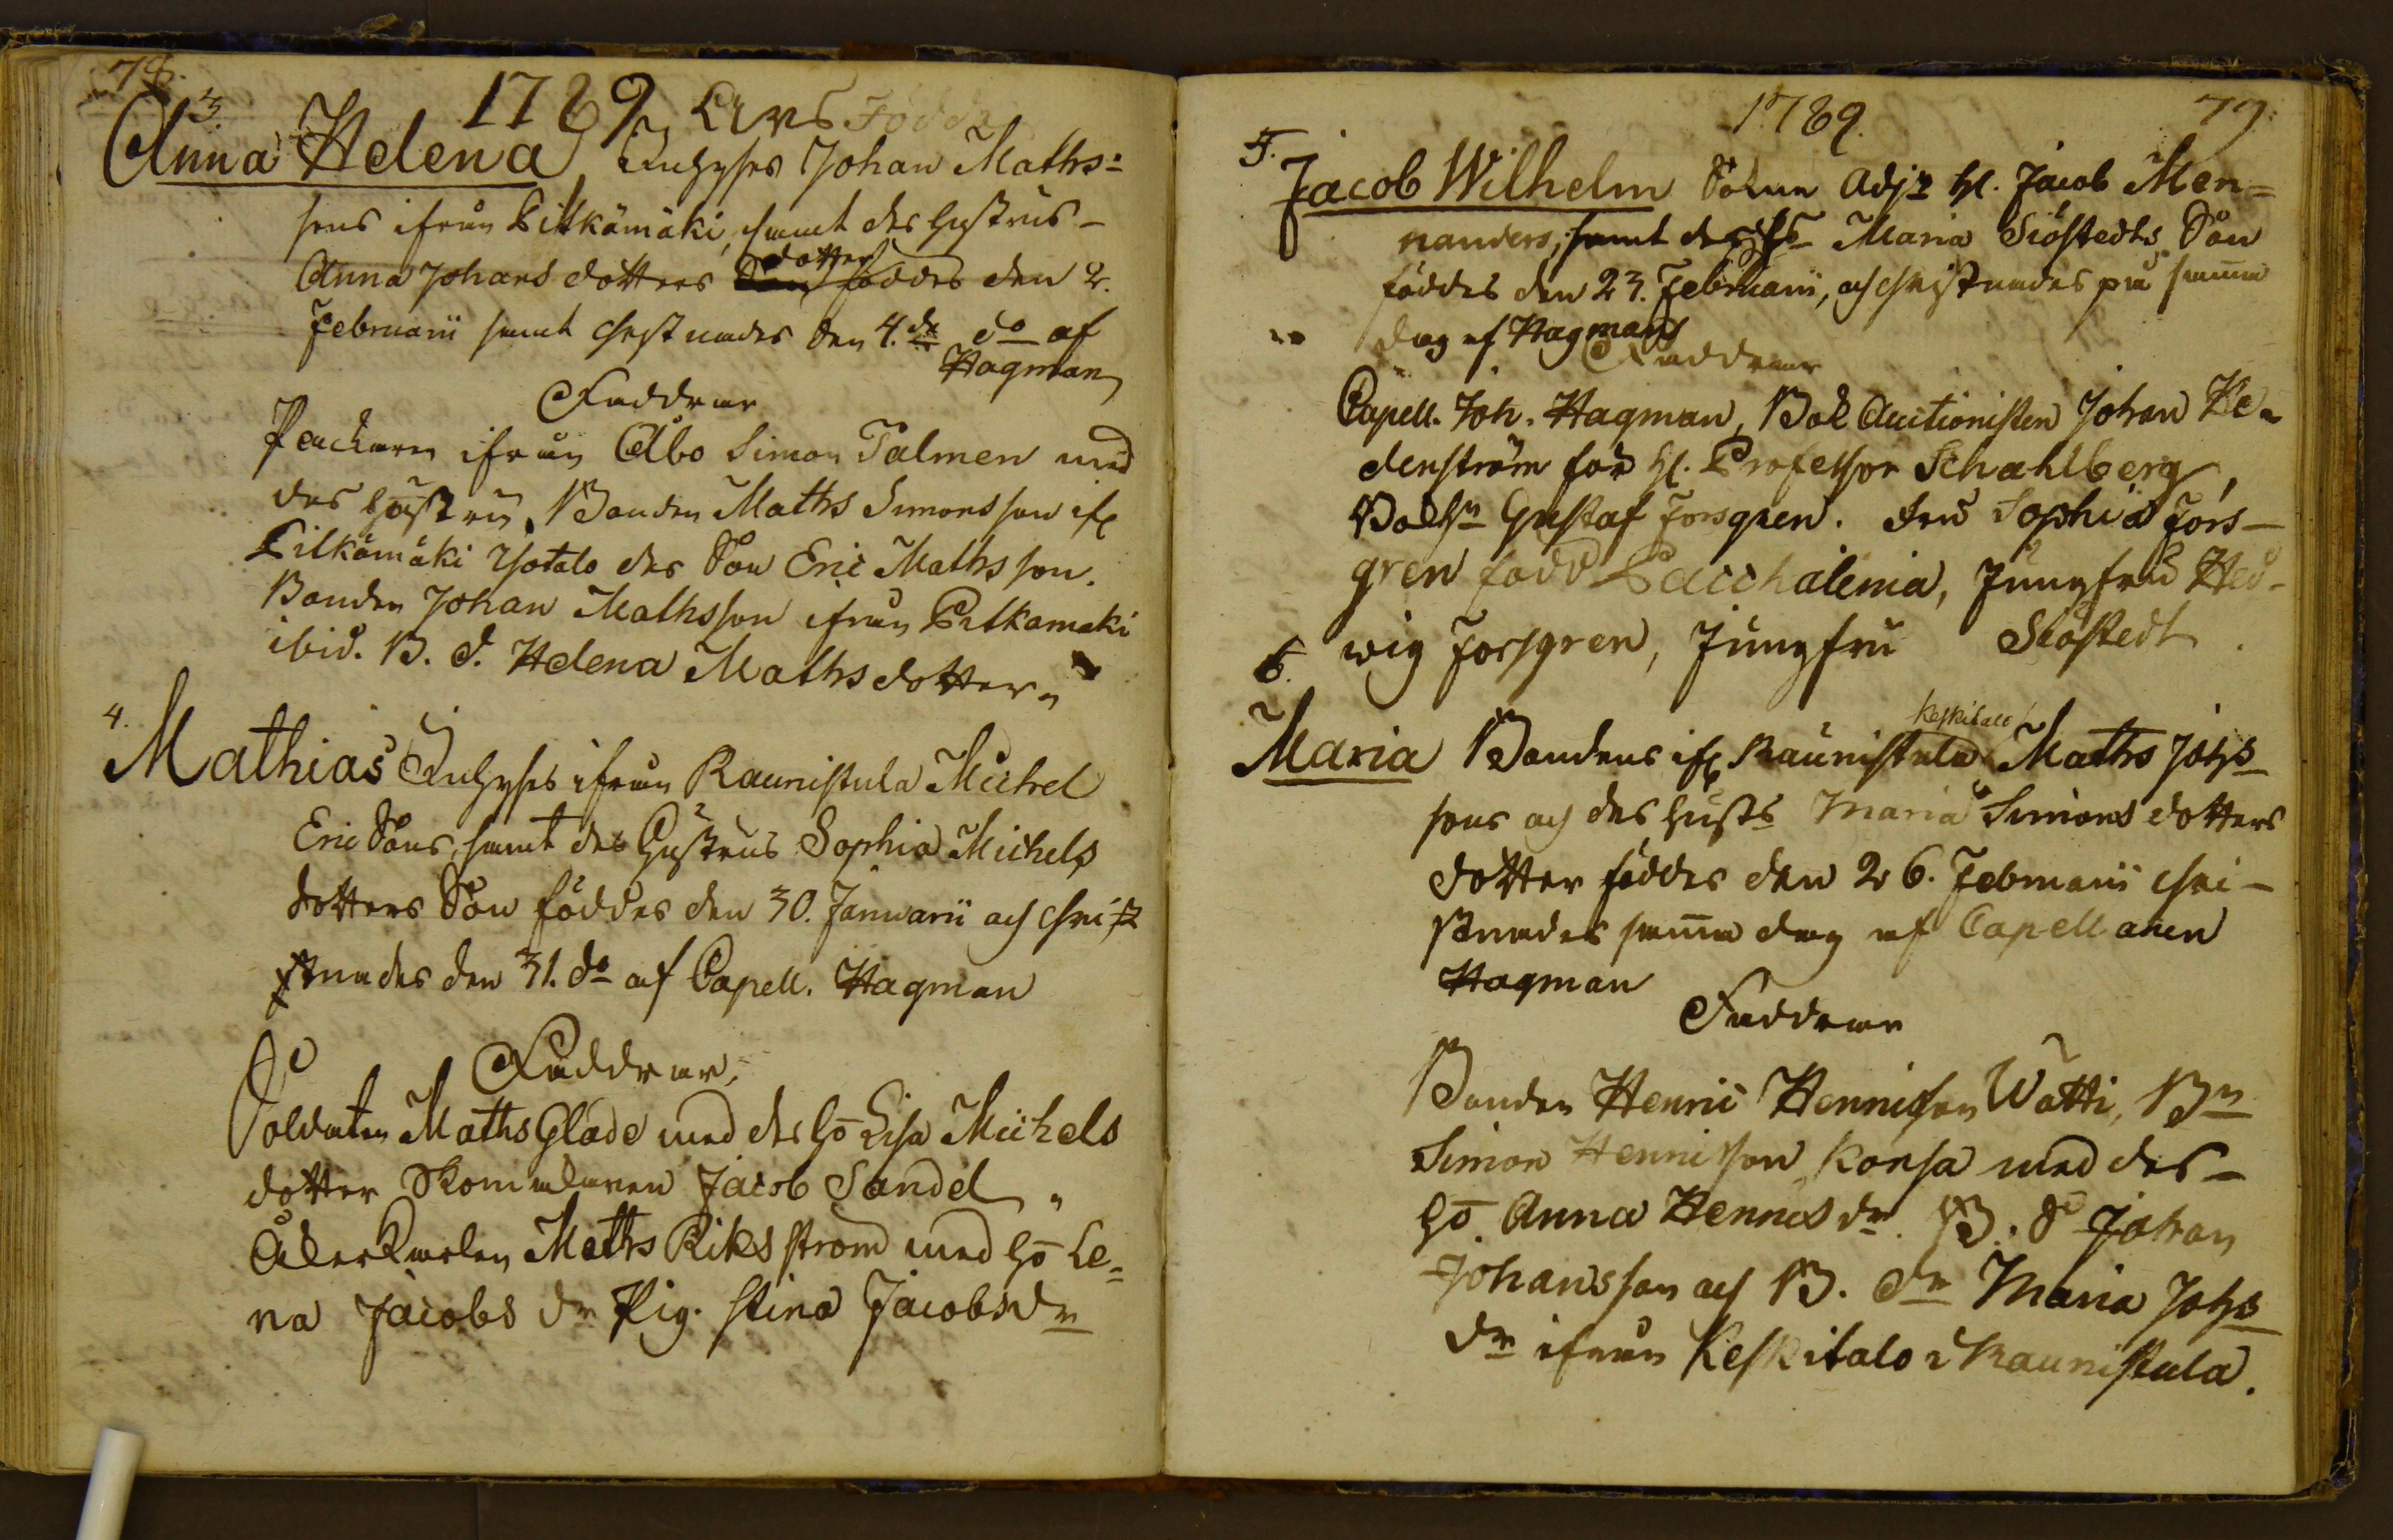 78.
1789 Års Födde
3.
Anna Helena, Inhyses Johan Maths=
sons ifrån Pitkämäki, samt des hustrus
Anna Johans dotters dotter föddes den 2.
Februarii samt Christnades den 4. do af
Hagman
Faddrar
Packaren ifrån Åbo Simon Talmen med
des hustru, Bonden Maths Simonsson ifr
Pitkämäki Yotalo des Son Eric Mathsson.
Bonden Johan Mathsson ifrån Pitkamaki
ibid. B. d. Helena Mathsdotter
4.
Mathias Inhyses ifrån Raunistula Michel
Eric Sons, samt des Hustrus Sophia Michels
dotters Son föddes den 30. Januarii och Chri
stnades den 31. do af Capell. Hagman
Faddrar,
Soldaten Maths Glade med des ho Lisa Michels
dotter Skomakaren Jacob Sandel
Åkerkarlen Maths Riksstrom med ho Le=
na Jacobs dr Pig. Stina Jacobs dr
1789. 79.
5.
Jacob Wilhelm Adj: H. Jacob Men=
nanders, samt des Maria Siöstedts Son
föddes den 23. Februarii, och Christnades på samma
dag af Hagman
Faddrar
Capell. Joh. Hagman, Bok Auctionisten Johan He=
denström för H. Professor Schahlberg,
Gustaf Forsgren. Fru Sophia Fors-
gren född Pacchalenia, Jungfru Hed-
wig Forsgren, Jungfru Siöstedt.
6.
Keskitalo
Maria Bondens ifr Raunistula Maths Johs
sons och des husts Maria Simons dotters
dotter föddes den 26. Februarii Chri-
stnades samma dag af Capellanen
Hagman
Faddrar
Bonden Henric Henricson Watti, Bn
Simon Henricson Korsa med des
ho. Anna Henrics dr. B. S Johan
Johansson och B. dr Maria Johs
dr ifrån Keskitalo i Raunistula.